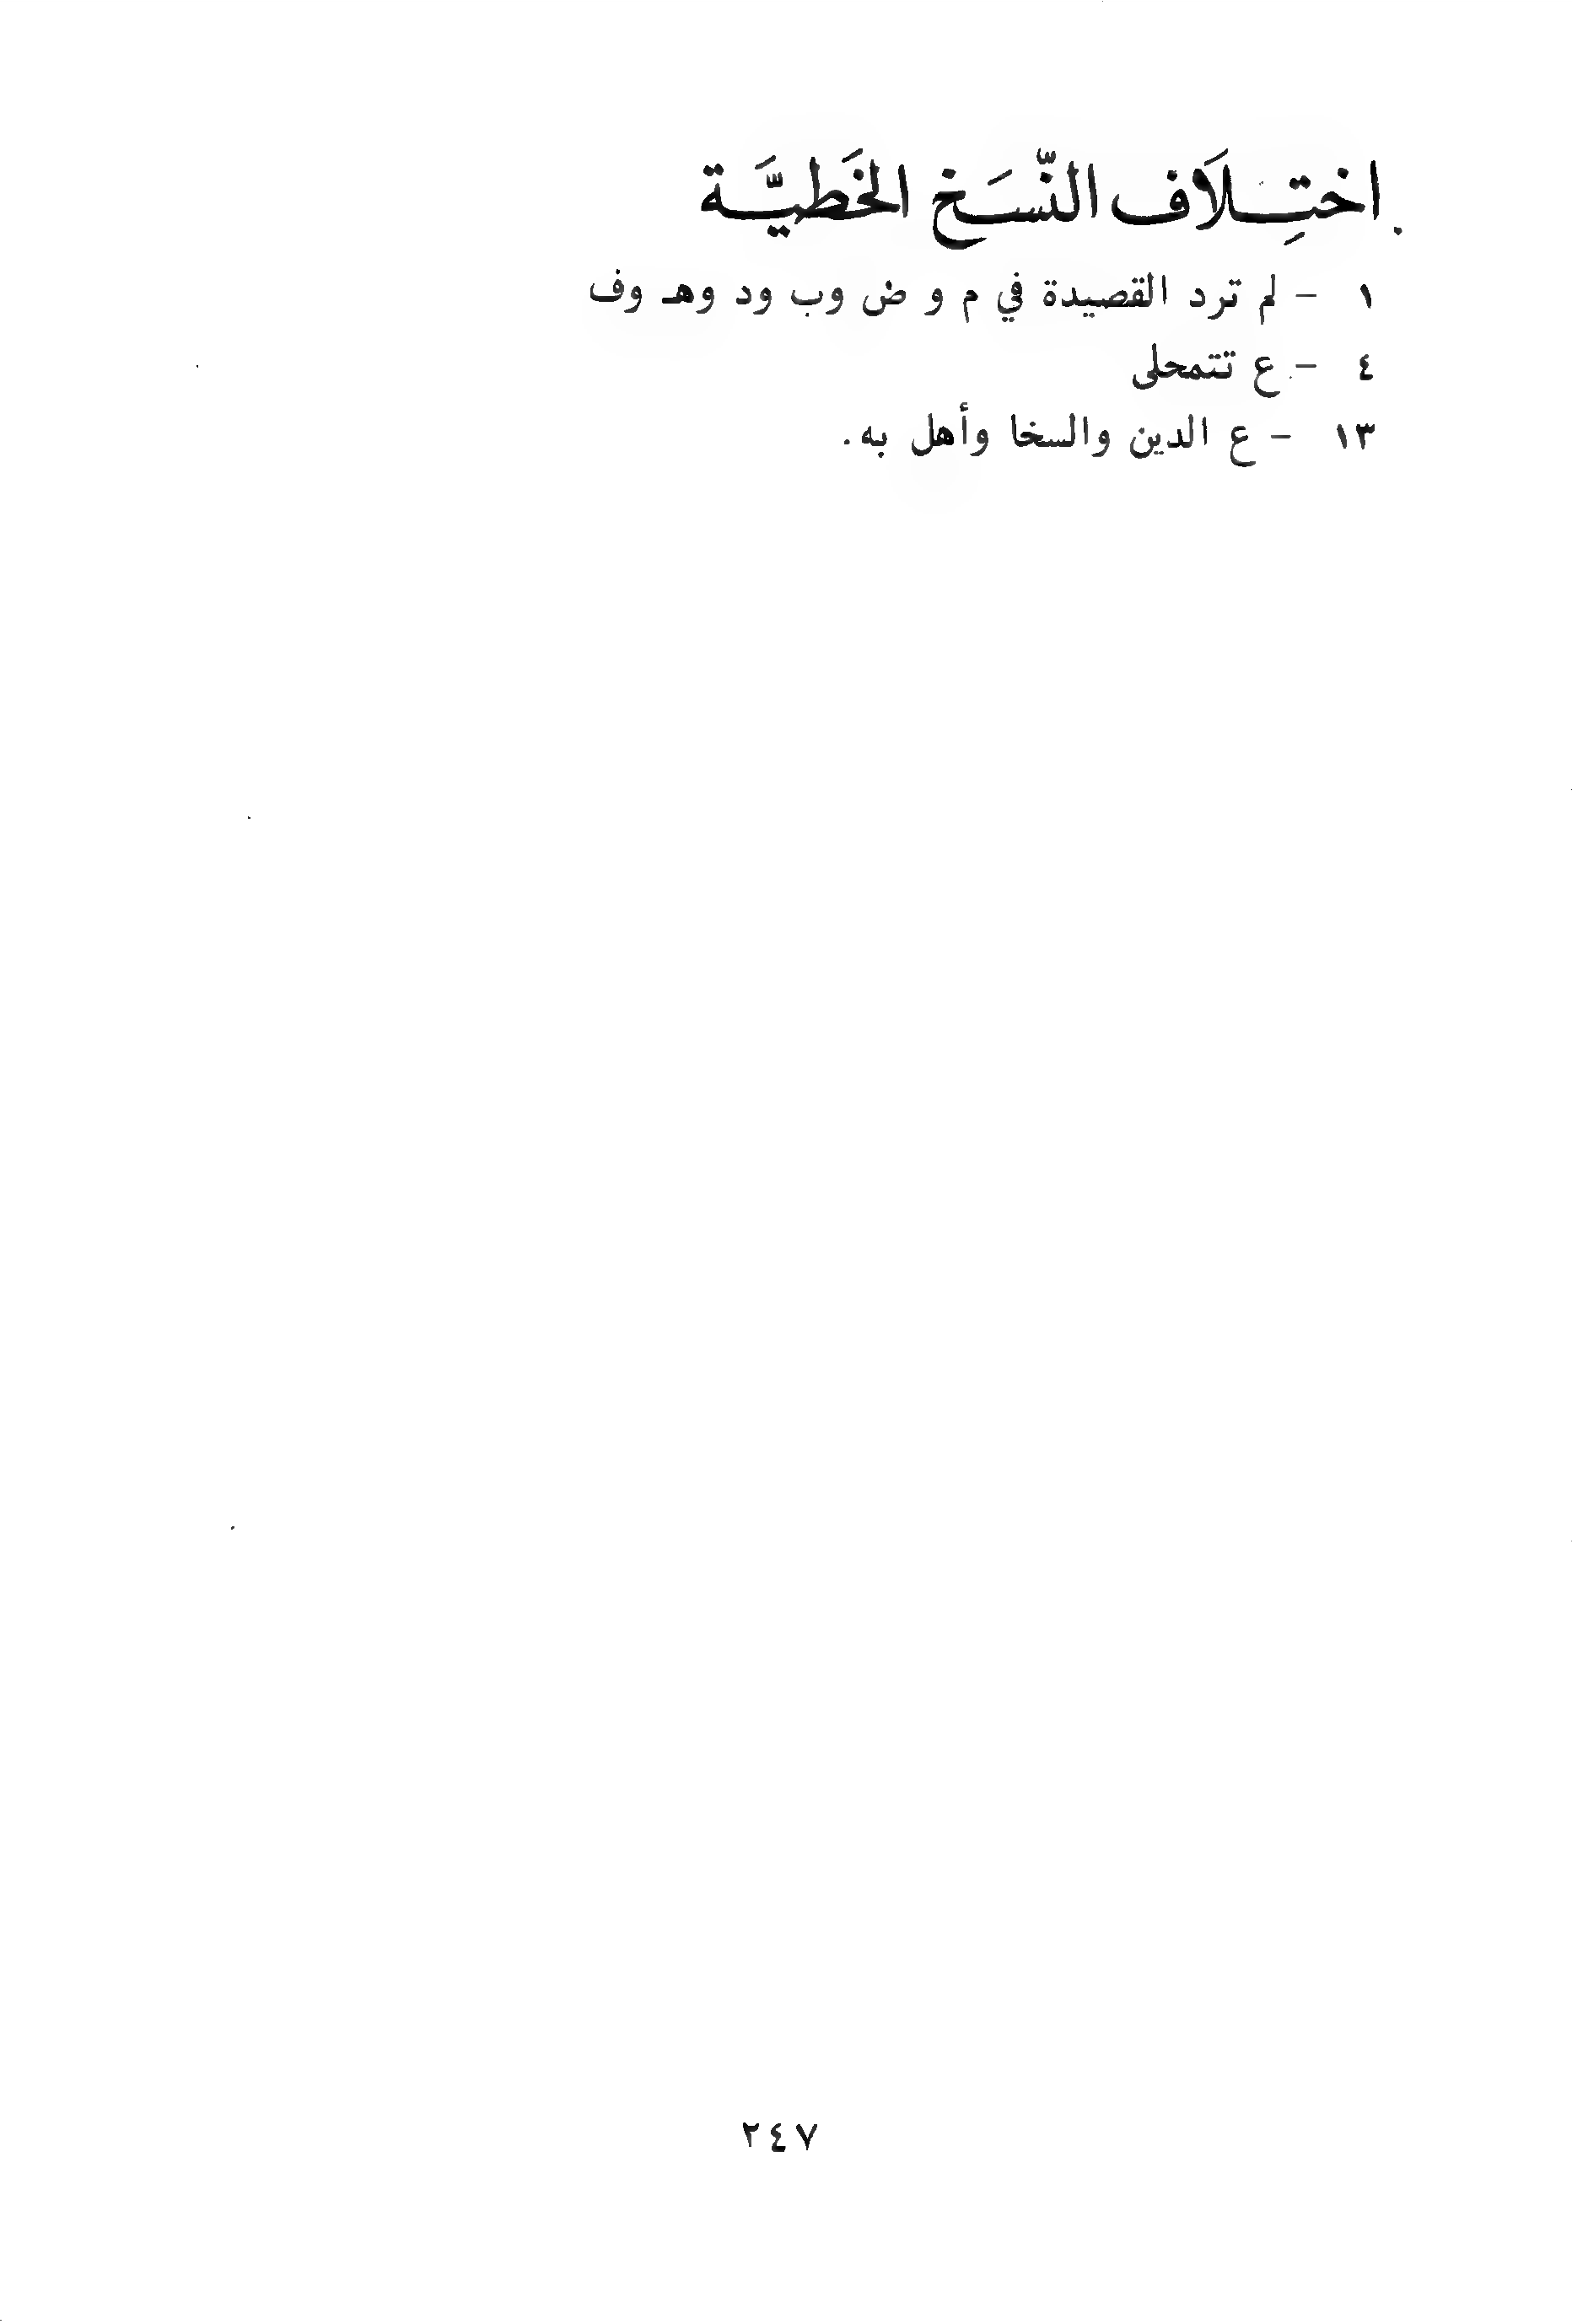 اختِلَاف النّسَخ الخَطيَّة
١ – لم ترد القصيدة في م و ض وب ود وهـ وف
٤ – ع تتمحلى
١٣ – ع الدين والسخا وأهل به.
٢٤٧